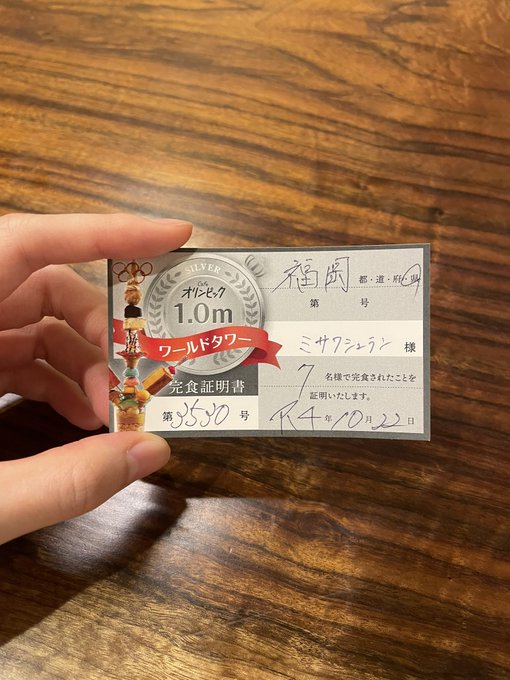 SILVER
Cafe
オリンピック
1.0m
ワールドタワー
完食証明書
第3530号
福岡 都・道・府・県
第 号
ミサワシュラン 様
7 名様で完食されたことを
証明いたします。
R4年10月22日